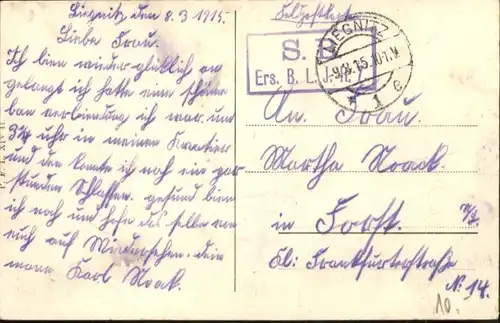 Liegnitz den 8.3 1915.
Liebe Frau.
Ich bin wieder glücklich an
gelangt ich hatte eine schöne
ban verbindung ich war um
3¼ uhr in meinem Kwartier
und da konnte ich noch ein par
stunden Schlaffen. gesund bin
ich noch und hofe das selbe von
euch auf Wiedersehen. dein
mann Karl Noack.
Feldpostkarte
S.
Ers. B. L. J.
LIEGNITZ
1 c
An. Frau.
Martha Noack.
in Forst. N/L
Kl: Frankfurterstraße
No. 14.
10.